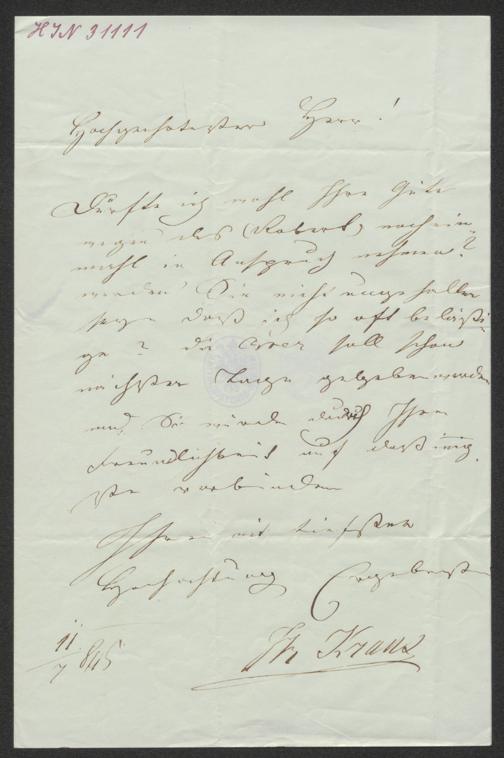 HIN 31111
Hochgeehrtester Herr!
Dürfte ich wohl Ihre Güte
wegen des (Robert) noch ein
mahl in Anspruch nehmen?
werden Sie nicht ungehalten
seyn daß ich so oft belästi
ge? die Oper soll schon
nächster Tage gegeben werden
und Sie würden durch Ihre
Freundlichkeit auf daß innig
ste verbinden
Ihren mit tiefster
Hochachtung Ergebenste
11/7 845
Th Kraus